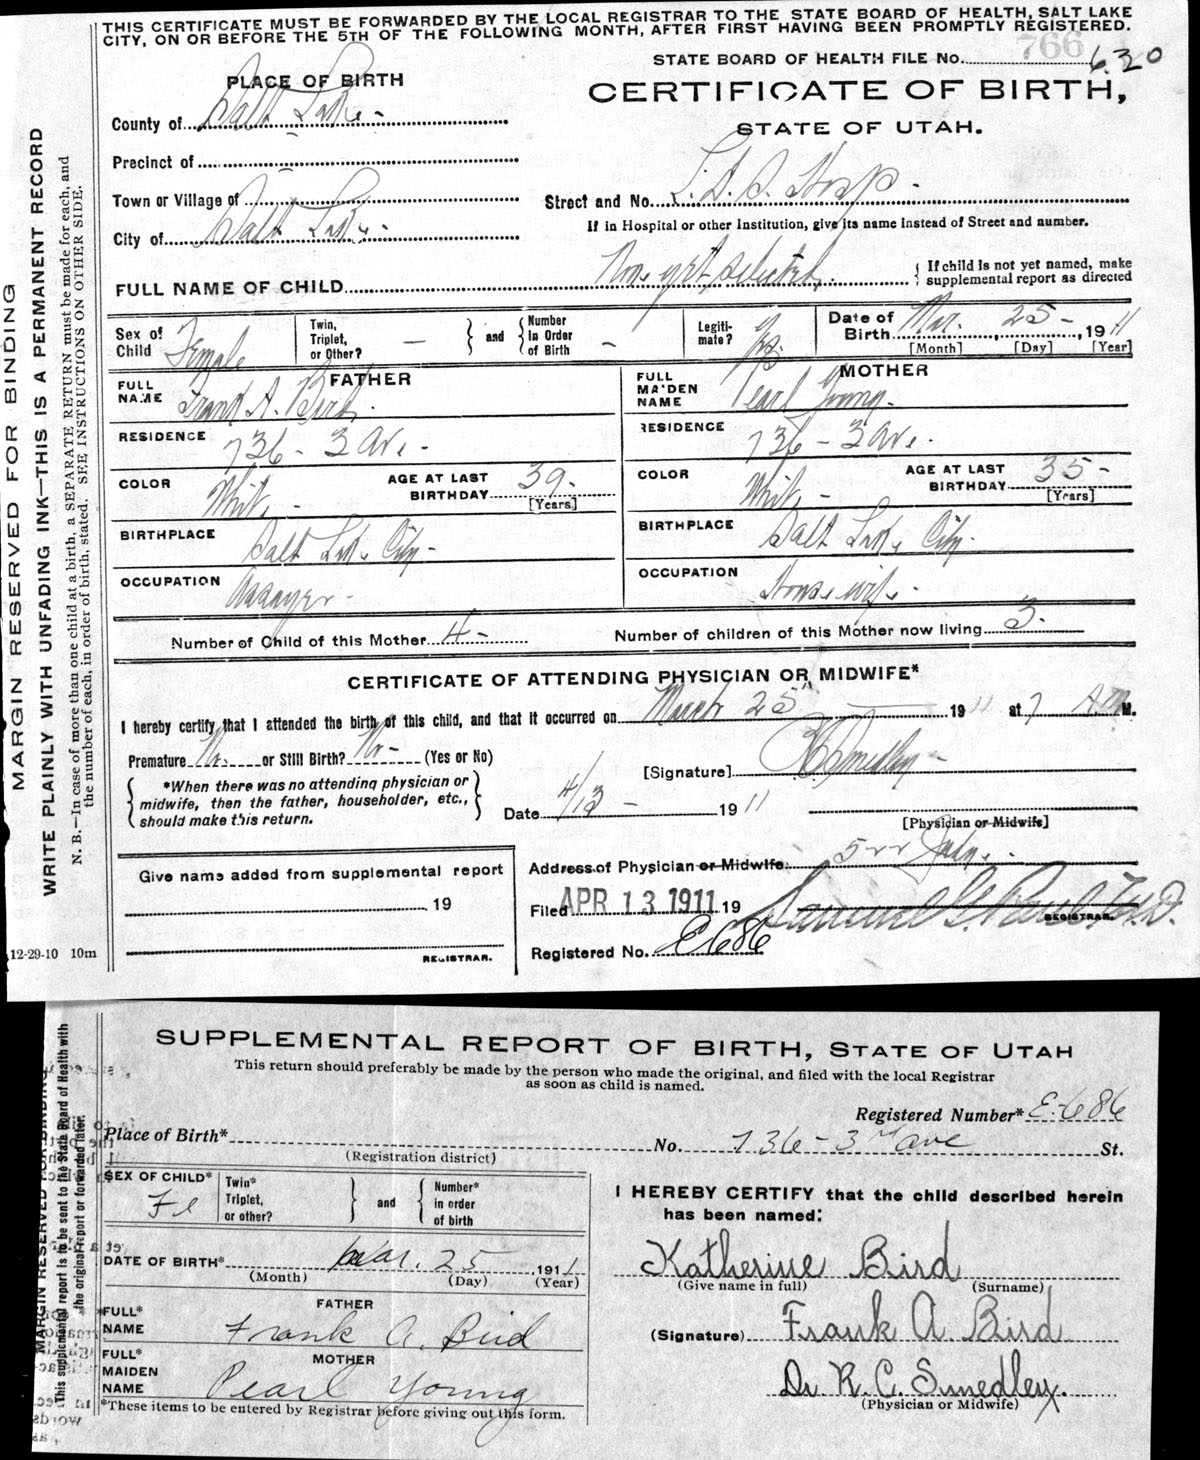 THIS CERTIFICATE MUST BE FORWARDED BY THE LOCAL REGISTRAR TO THE STATE BOARD OF HEALTH, SALT LAKE
CITY, ON OR BEFORE THE 5TH OF THE FOLLOWING MONTH, AFTER FIRST HAVING BEEN PROMPTLY REGISTERED.
766
STATE BOARD OF HEALTH FILE No. 630
PLACE OF BIRTH
CERTIFICATE OF BIRTH,
STATE OF UTAH.
County of Salt Lake -
Precinct of
Town or Village of
City of Salt Lake -
Street and No. L. D. S. Hosp -
If in Hospital or other Institution, give its name instead of Street and number.
FULL NAME OF CHILD None yet selected.
If child is not yet named, make
supplemental report as directed
Sex of Child Female
Twin, Triplet, or Other? —
and
Number in Order of Birth -
Legitimate? Yes.
Date of Birth Mar. 25 - , 1911
[Month] [Day] [Year]
FATHER
FULL NAME Frank A. Bird.
RESIDENCE 736 - 3 Av. -
COLOR White -
AGE AT LAST BIRTHDAY 39 -
[Years]
BIRTHPLACE Salt Lake City -
OCCUPATION Assayer -
MOTHER
FULL MAIDEN NAME Pearl Young.
RESIDENCE 736 - 3 Av. -
COLOR White -
AGE AT LAST BIRTHDAY 35 -
[Years]
BIRTHPLACE Salt Lake City.
OCCUPATION Housewife.
Number of Child of this Mother 4 -
Number of children of this Mother now living 3.
CERTIFICATE OF ATTENDING PHYSICIAN OR MIDWIFE*
I hereby certify that I attended the birth of this child, and that it occurred on March 25 1911 at 7 A.M.
Premature No. or Still Birth? No - (Yes or No)
*When there was no attending physician or
midwife, then the father, householder, etc.,
should make this return.
[Signature] Smedley
Date 4/13 - 1911
[Physician or Midwife]
Address of Physician or Midwife 522 Judge.
Give name added from supplemental report
19
REGISTRAR.
Filed APR 13 1911 19
Samuel G. Paul M.D.
REGISTRAR.
Registered No. E 686
12-29-10 10m
MARGIN RESERVED FOR BINDING
WRITE PLAINLY WITH UNFADING INK—THIS IS A PERMANENT RECORD
N. B.—In case of more than one child at a birth, a SEPARATE RETURN must be made for each, and
the number of each, in order of birth, stated. SEE INSTRUCTIONS ON OTHER SIDE.
SUPPLEMENTAL REPORT OF BIRTH, STATE OF UTAH
This return should preferably be made by the person who made the original, and filed with the local Registrar
as soon as child is named.
Registered Number* E-686
Place of Birth* No. 736 - 3rd ave St.
(Registration district)
SEX OF CHILD* Fe
Twin* Triplet, or other?
and
Number* in order of birth
DATE OF BIRTH* Mar. 25 , 1911
(Month) (Day) (Year)
FATHER
FULL* NAME Frank A. Bird
MOTHER
FULL* MAIDEN NAME Pearl Young
*These items to be entered by Registrar before giving out this form.
I HEREBY CERTIFY that the child described herein
has been named:
Katherine Bird
(Give name in full) (Surname)
(Signature) Frank A Bird
Dr. R. C. Smedley.
(Physician or Midwife)
MARGIN RESERVED FOR BINDING
This supplemental report is to be sent to the State Board of Health with
the original report or forwarded later.